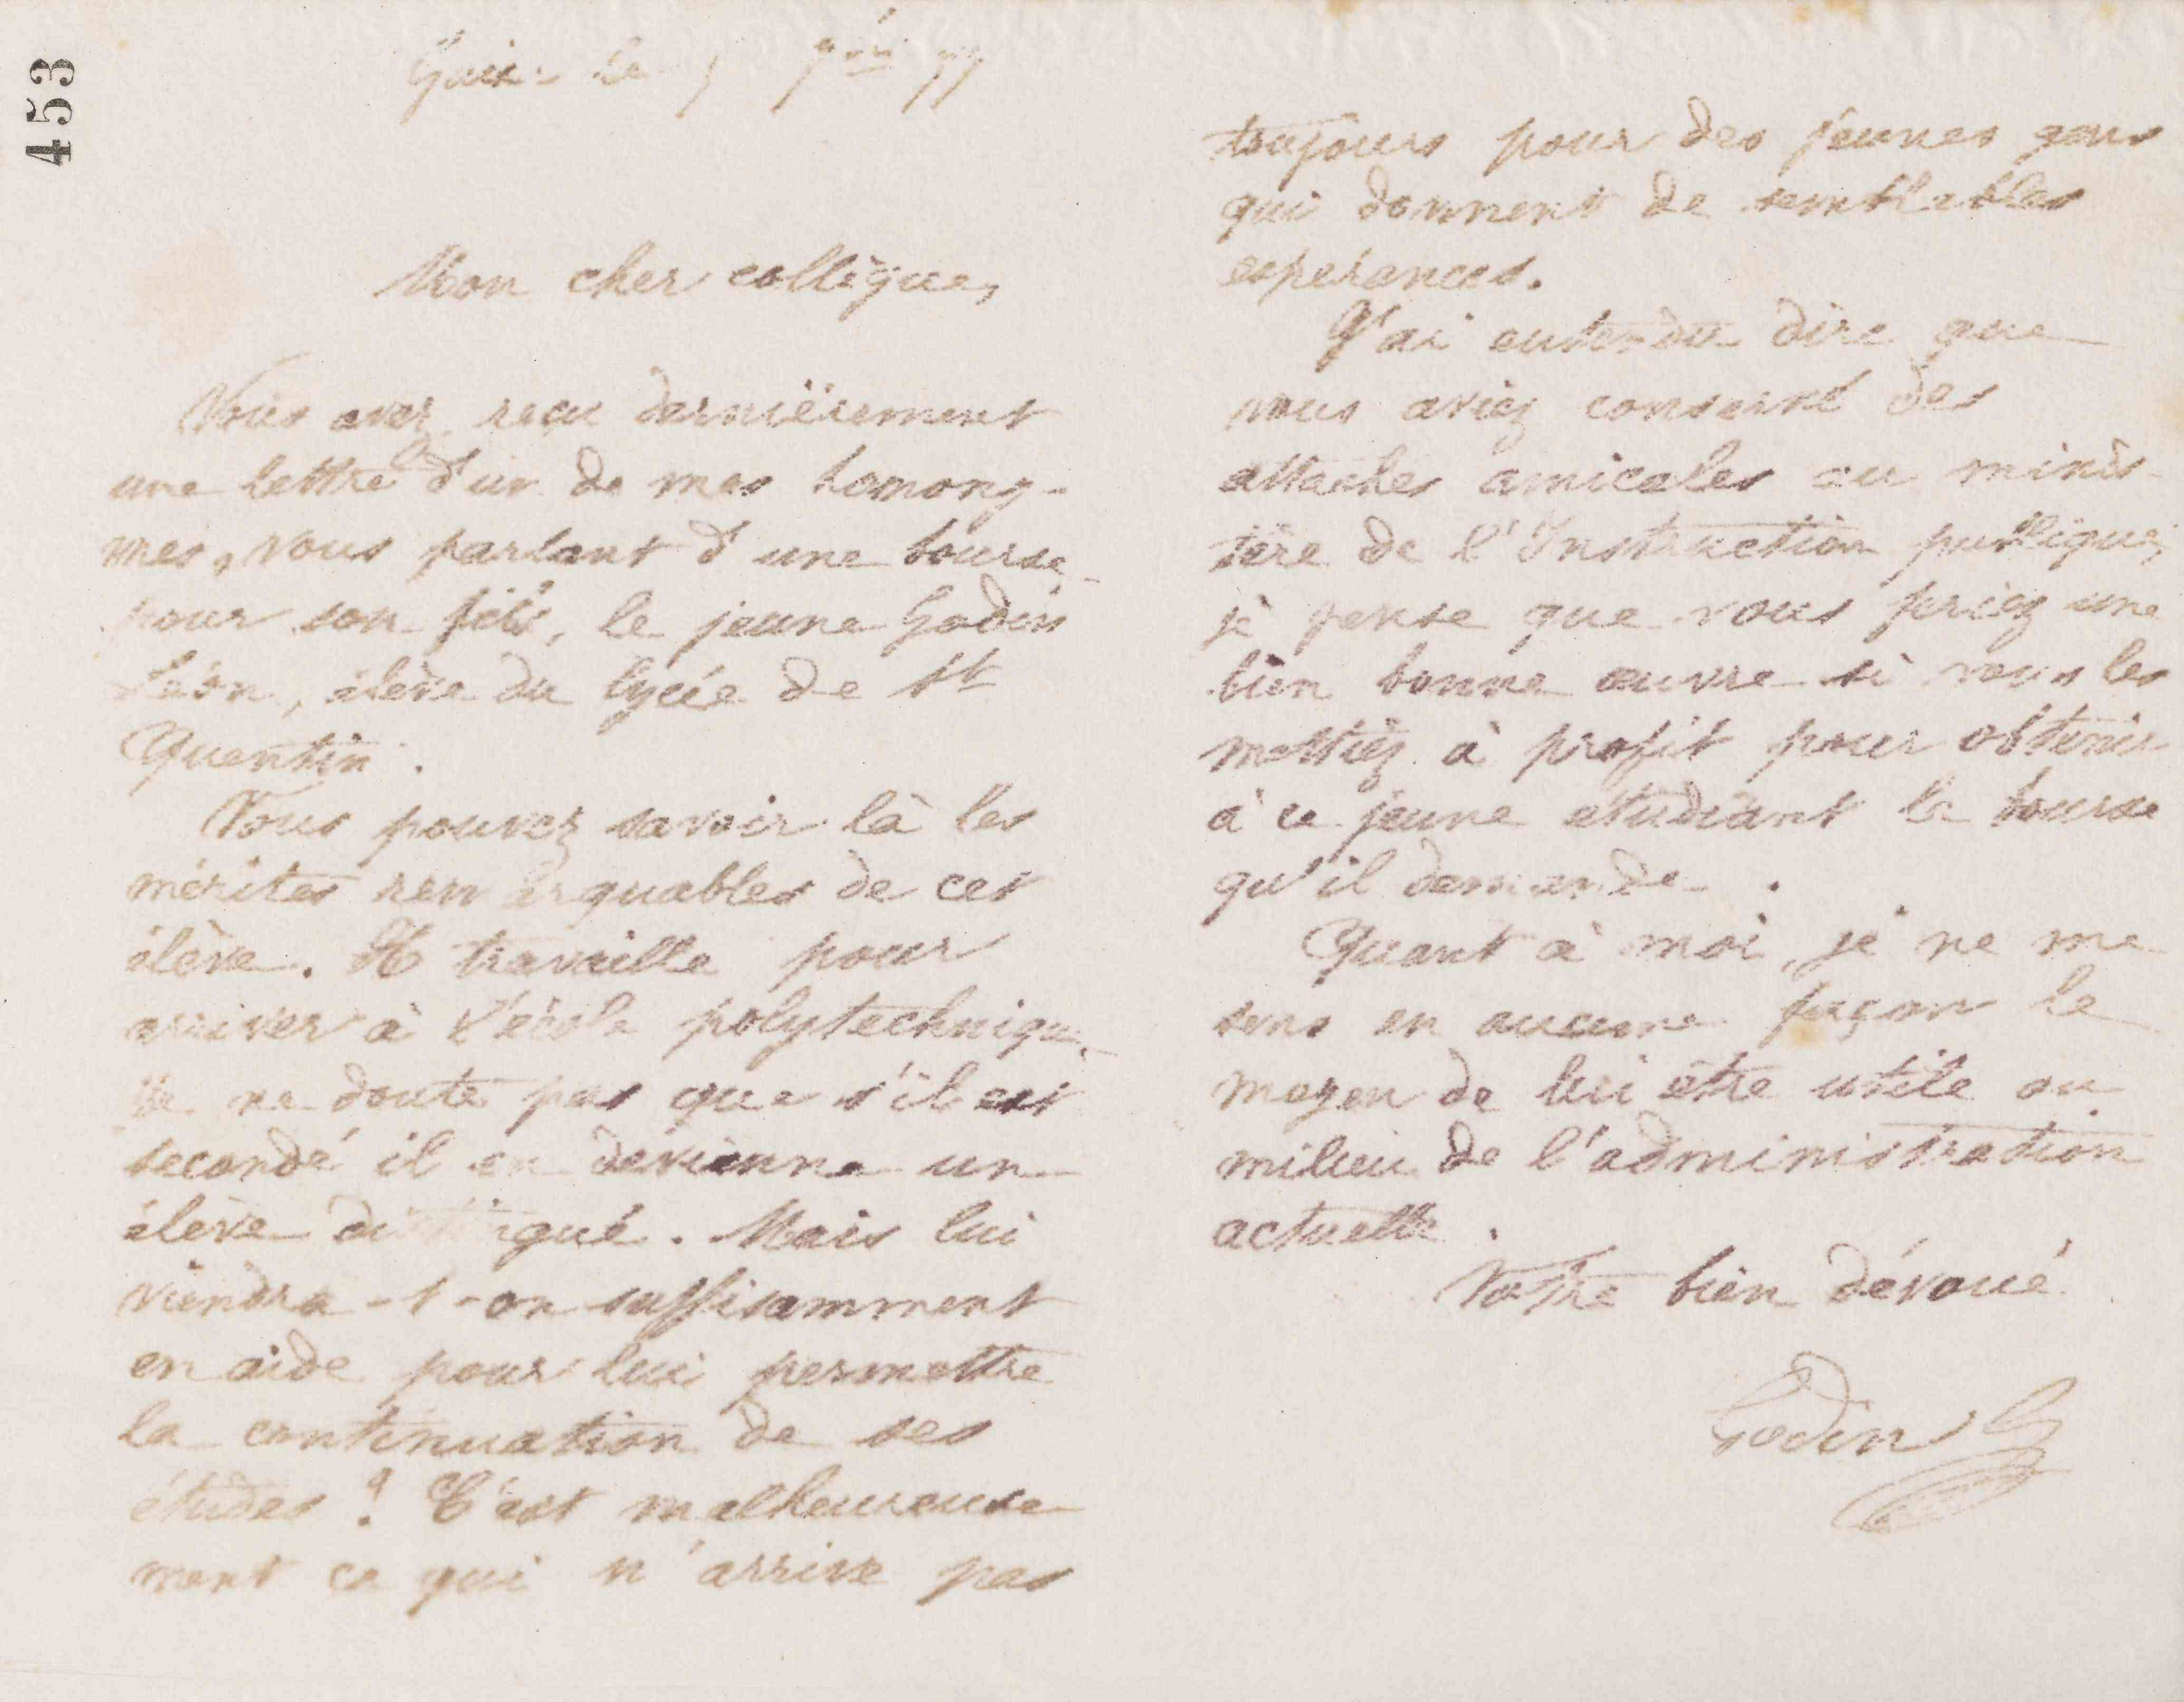 453
Guise le 7bre 77
Mon cher collègue,
Vous avez reçu dernièrement
une lettre d'un de mes homony-
mes, vous parlant d'une bourse
pour son fils, le jeune Godin
Léon, élève du lycée de St
Quentin.
Vous pouvez savoir là les
mérites remarquables de cet
élève. Il travaille pour
arriver à l'école polytechnique.
Je ne doute pas que s'il est
secondé il en devienne un
élève distingué. Mais lui
viendra-t-on suffisamment
en aide pour lui permettre
la continuation de ses
études ? C'est malheureuse
ment ce qui n'arrive pas
toujours pour des jeunes gens
qui donnent de semblables
esperances.
J'ai entendu dire que
vous aviez conservé des
attaches amicales au minis-
tère de l'Instruction publique,
je pense que vous feriez une
bien bonne œuvre si vous les
mettiez à profit pour obtenir
à ce jeune étudiant la bourse
qu'il demande.
Quant à moi, je ne me
sens en aucune façon le
moyen de lui être utile au
milieu de l'administration
actuelle.
Votre bien dévoué
Godin